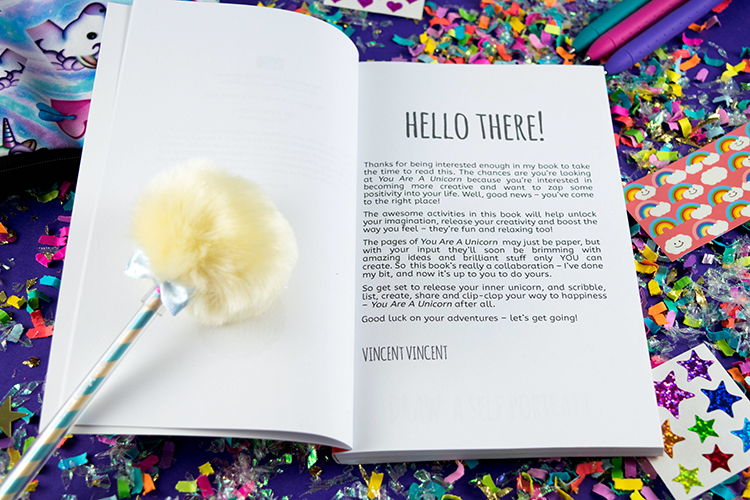 HELLO THERE!
Thanks for being interested enough in my book to take
the time to read this. The chances are you're looking
at You Are A Unicorn because you're interested in
becoming more creative and want to zap some
positivity into your life. Well, good news – you've come
to the right place!
The awesome activities in this book will help unlock
your imagination, release your creativity and boost the
way you feel – they're fun and relaxing too!
The pages of You Are A Unicorn may just be paper, but
with your input they'll soon be brimming with
amazing ideas and brilliant stuff only YOU can
create. So this book's really a collaboration – I've done
my bit, and now it's up to you to do yours.
So get set to release your inner unicorn, and scribble,
list, create, share and clip-clop your way to happiness
– You Are A Unicorn after all.
Good luck on your adventures – let's get going!
VINCENT VINCENT